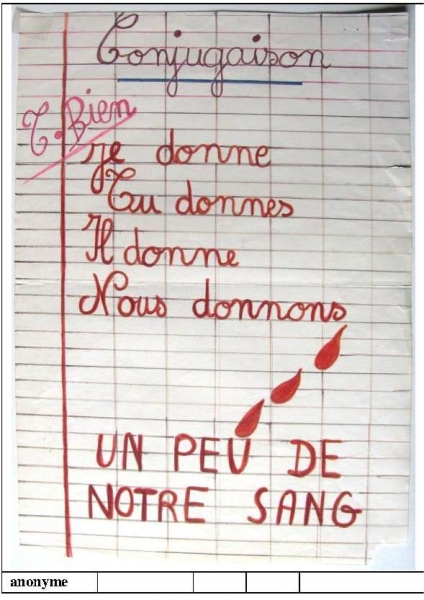 Conjugaison
T. Bien
Je donne
Tu donnes
Il donne
Nous donnons
UN PEU DE
NOTRE SANG
anonyme